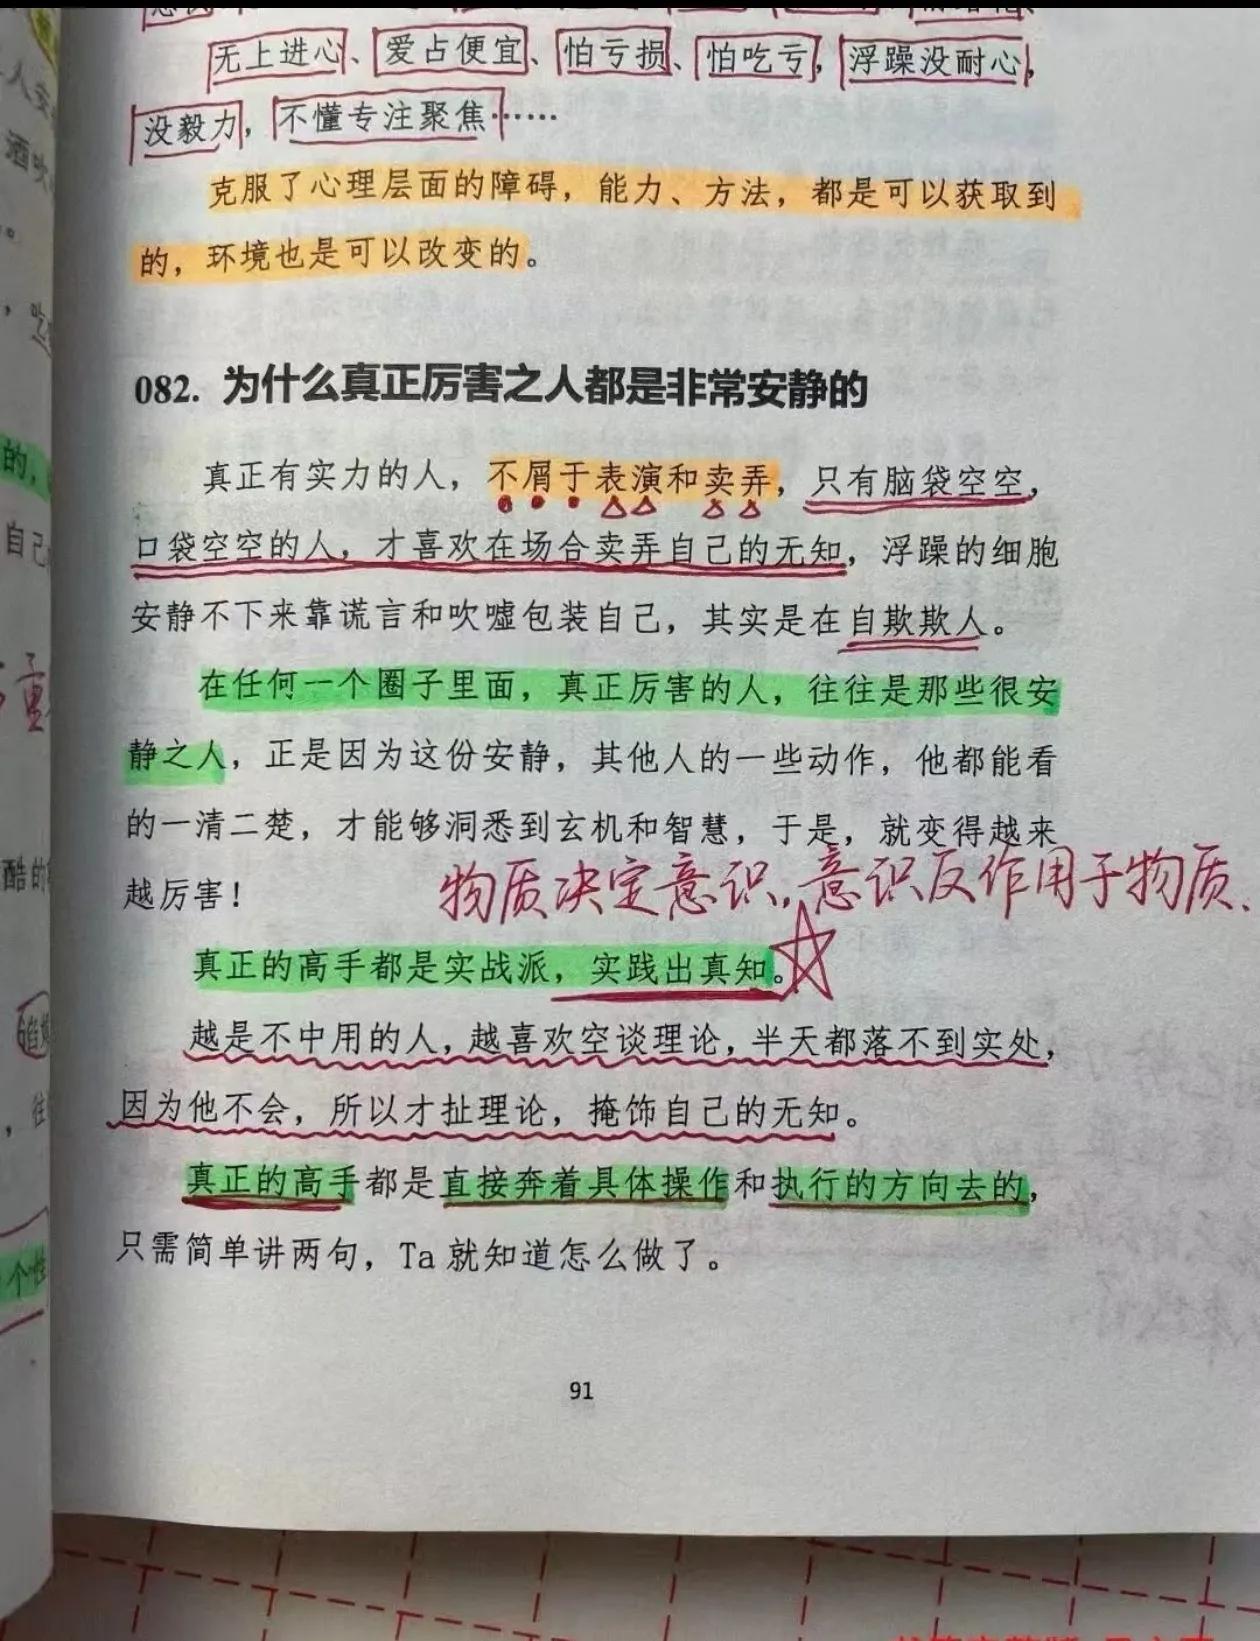 无上进心、爱占便宜、怕亏损、怕吃亏，浮躁没耐心，
没毅力，不懂专注聚焦……
克服了心理层面的障碍，能力、方法，都是可以获取到
的，环境也是可以改变的。
082. 为什么真正厉害之人都是非常安静的
真正有实力的人，不屑于表演和卖弄，只有脑袋空空，
口袋空空的人，才喜欢在场合卖弄自己的无知，浮躁的细胞
安静不下来靠谎言和吹嘘包装自己，其实是在自欺欺人。
在任何一个圈子里面，真正厉害的人，往往是那些很安
静之人，正是因为这份安静，其他人的一些动作，他都能看
的一清二楚，才能够洞悉到玄机和智慧，于是，就变得越来
越厉害！
物质决定意识，意识反作用于物质.
真正的高手都是实战派，实践出真知。
越是不中用的人，越喜欢空谈理论，半天都落不到实处，
因为他不会，所以才扯理论，掩饰自己的无知。
真正的高手都是直接奔着具体操作和执行的方向去的，
只需简单讲两句，Ta 就知道怎么做了。
91